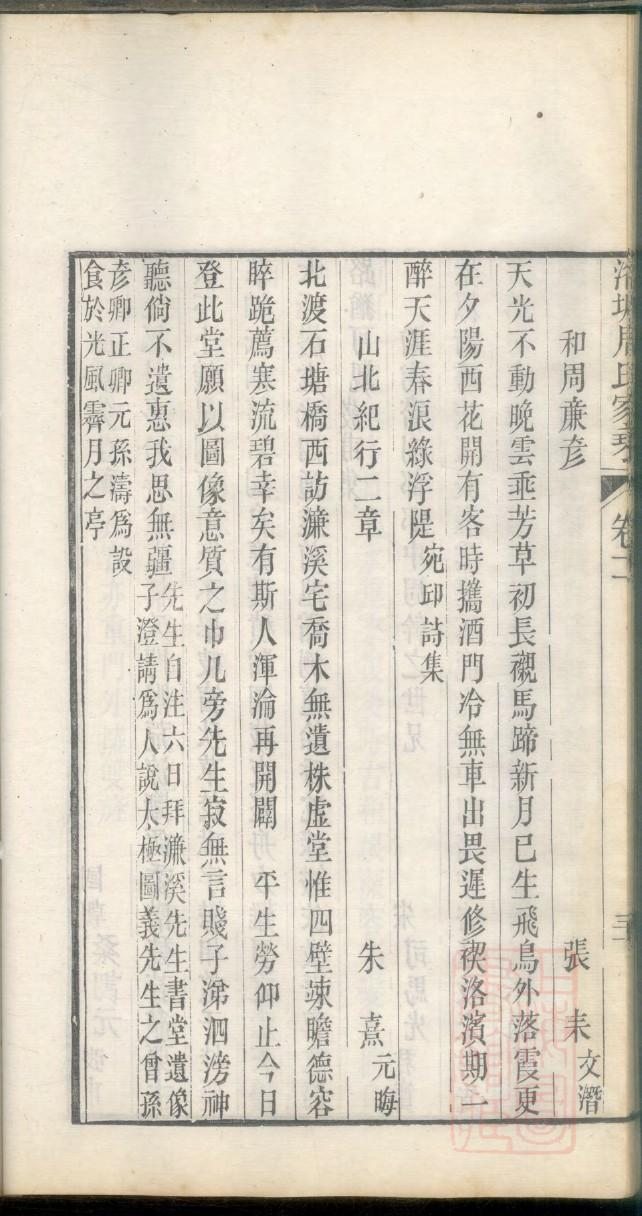 周氏家 卷二 三
和周亷彦 張耒文潛
天光不動晚雲垂芳草初長襯馬蹄新月已生飛鳥外落霞更
在夕陽西花開有客時攜酒門冷無車出畏遲修禊洛濱期一
醉天涯春浪綠浮隄宛邱詩集
山北紀行二章 朱熹元晦
北渡石塘橋西訪濂溪宅喬木無遺株虛堂惟四壁竦瞻德容
睟跪薦寒流碧幸矣有斯人渾淪再開闢 平生勞仰止今日
登此堂願以圖像意質之巾几旁先生寂無言賤子涕泗滂神
聽倘不遺惠我思無疆先生自注六日拜濂溪先生書堂遺像
子澄請爲人說太極圖義先生之曾孫
彥卿正卿元孫濤爲設
食於光風霽月之亭